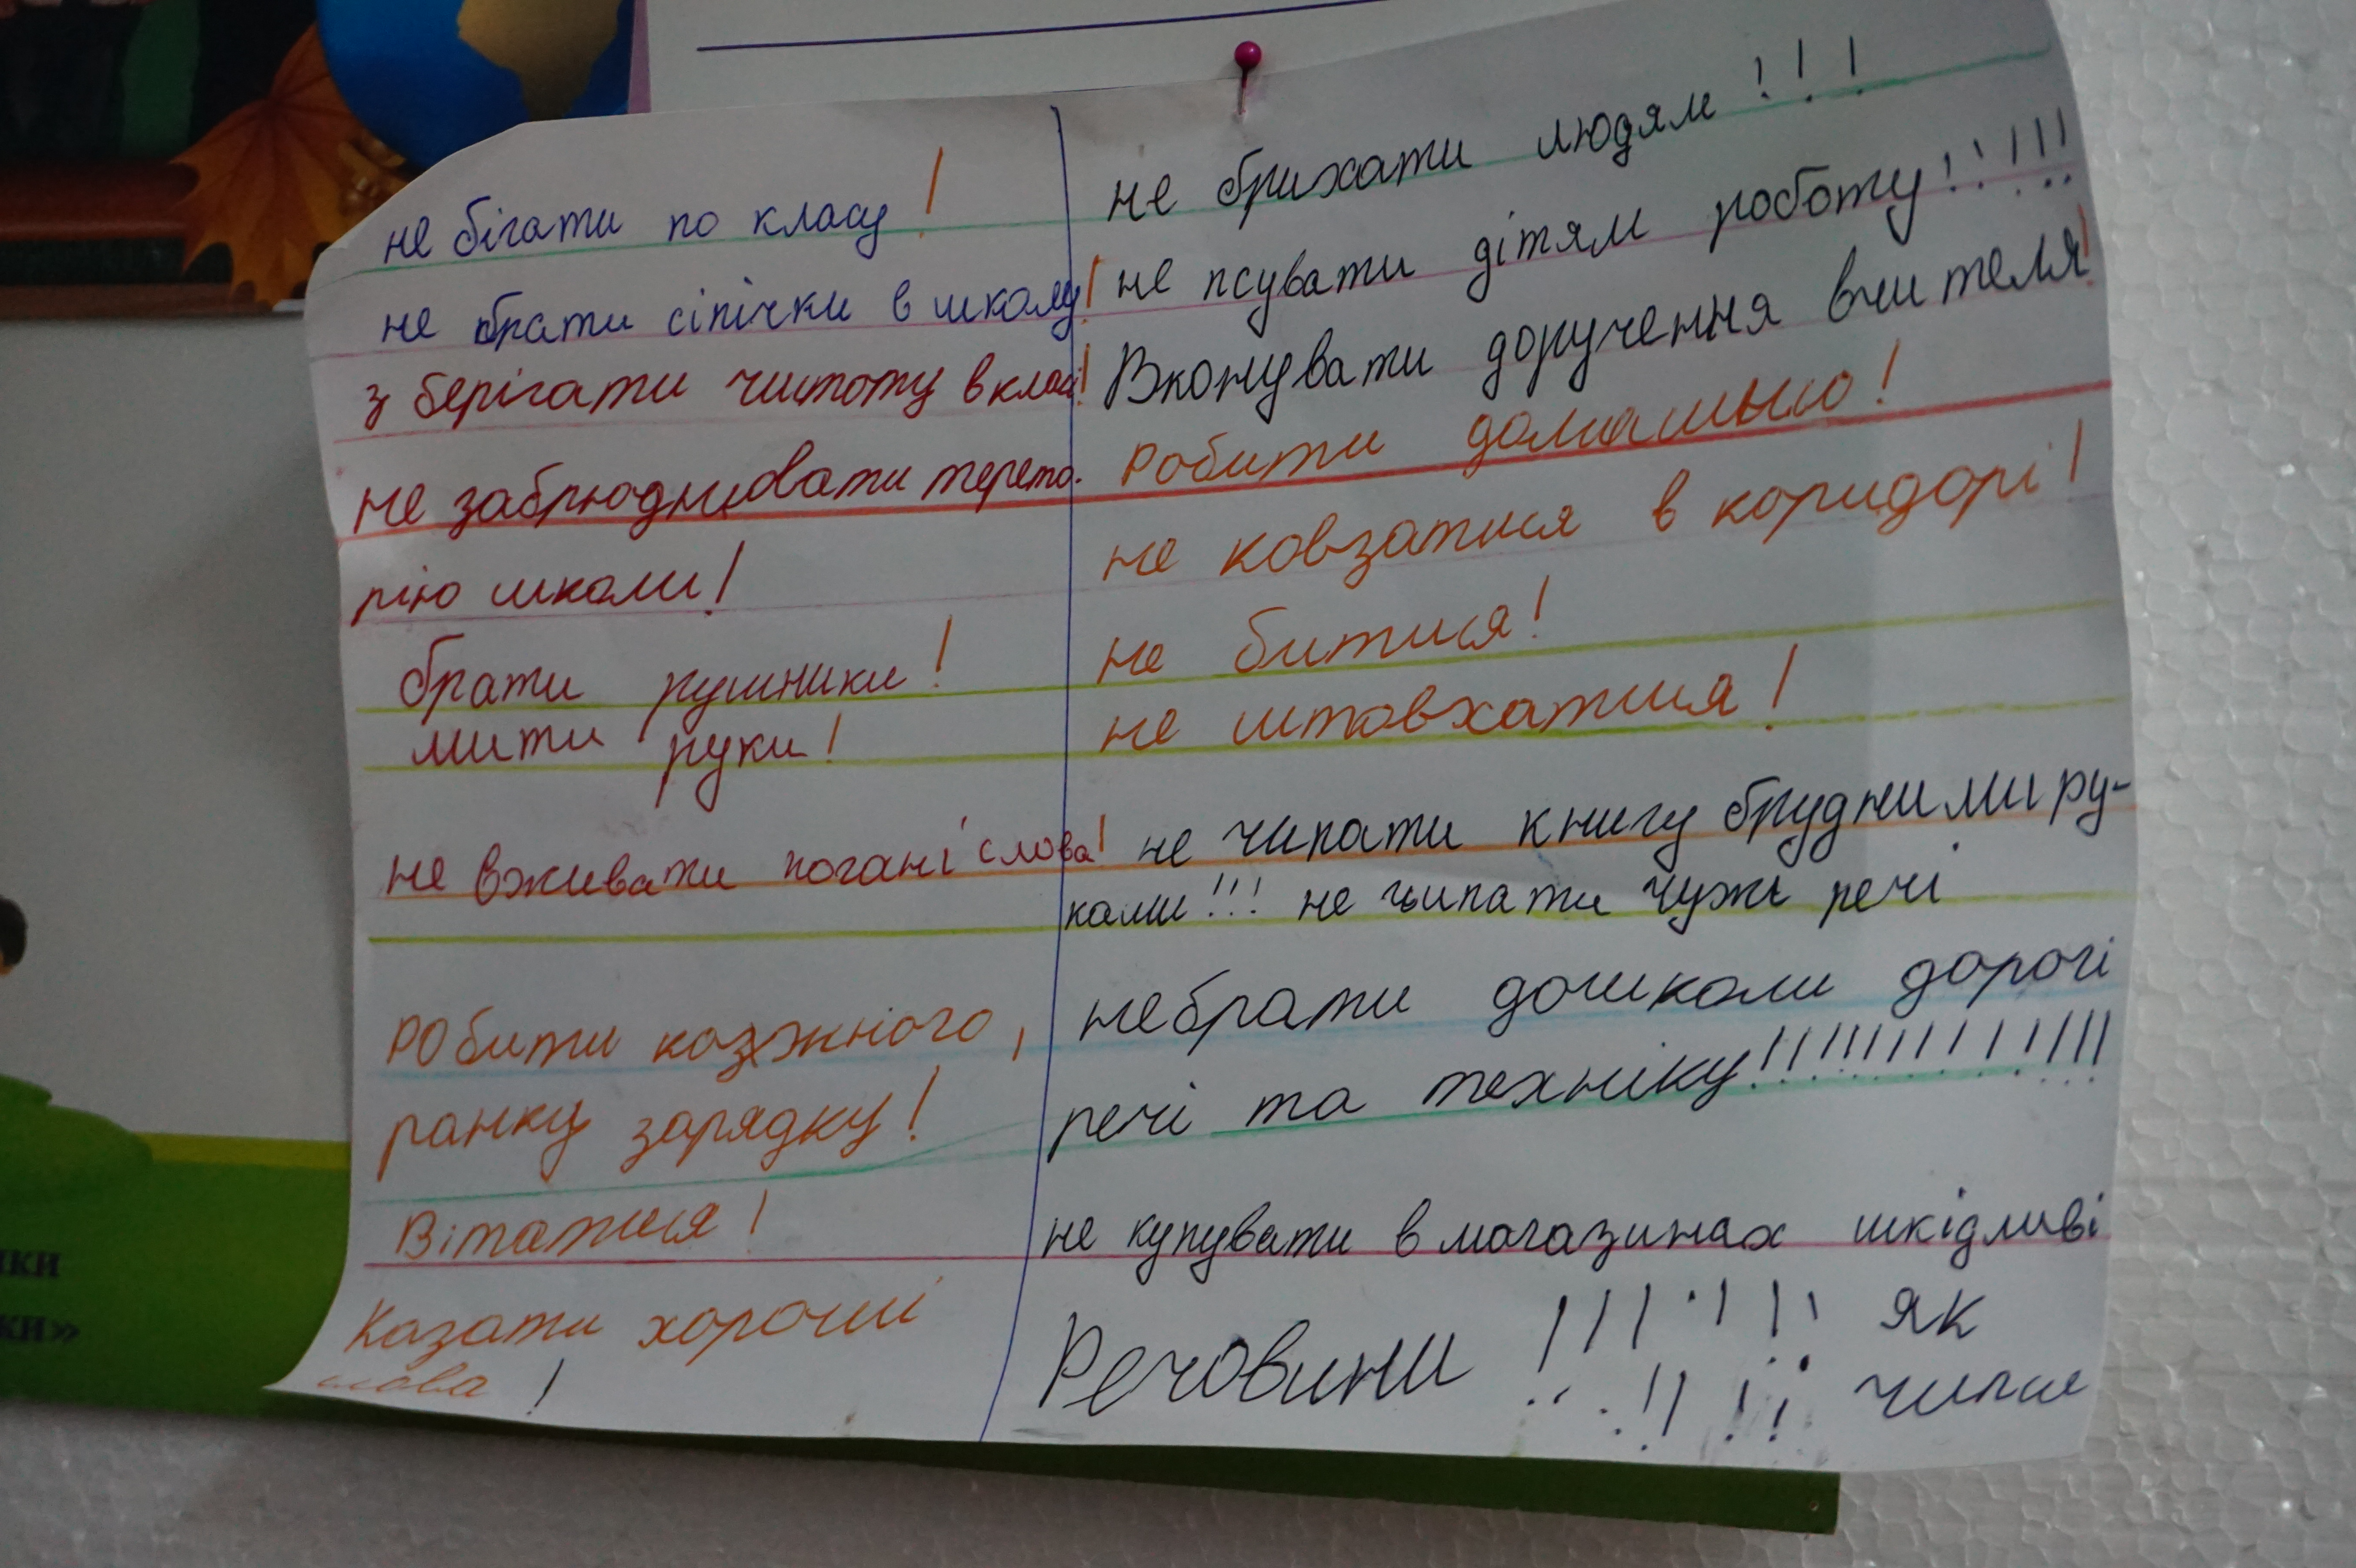 не бігати по класу!
не брати сіпічки в школу!
з берігати чистоту в класі!
не заблюднювати терето.
рію школи!
брати рушники!
мити руки!
не вживати погані слова!
Робити козжного,
ранку зарядку!
Вітатися!
Казати хороші
слова!
не брихати людям!!!
не псувати дітям роботу!!!!!
Вконувати доручення вчителя!
Робити домашью!
не ковзатися в коридорі!
не битися!
не штовхатися!
не чипати книгу брудними ру-
ками!!! не чипати чужі речі
небрати дошколи дорогі
речі та техніку!!!!!!!!!!!!!
не купувати в магазинах шкідливі
Речовини !!!!!!! як
!!!! чипси
ики
ки»